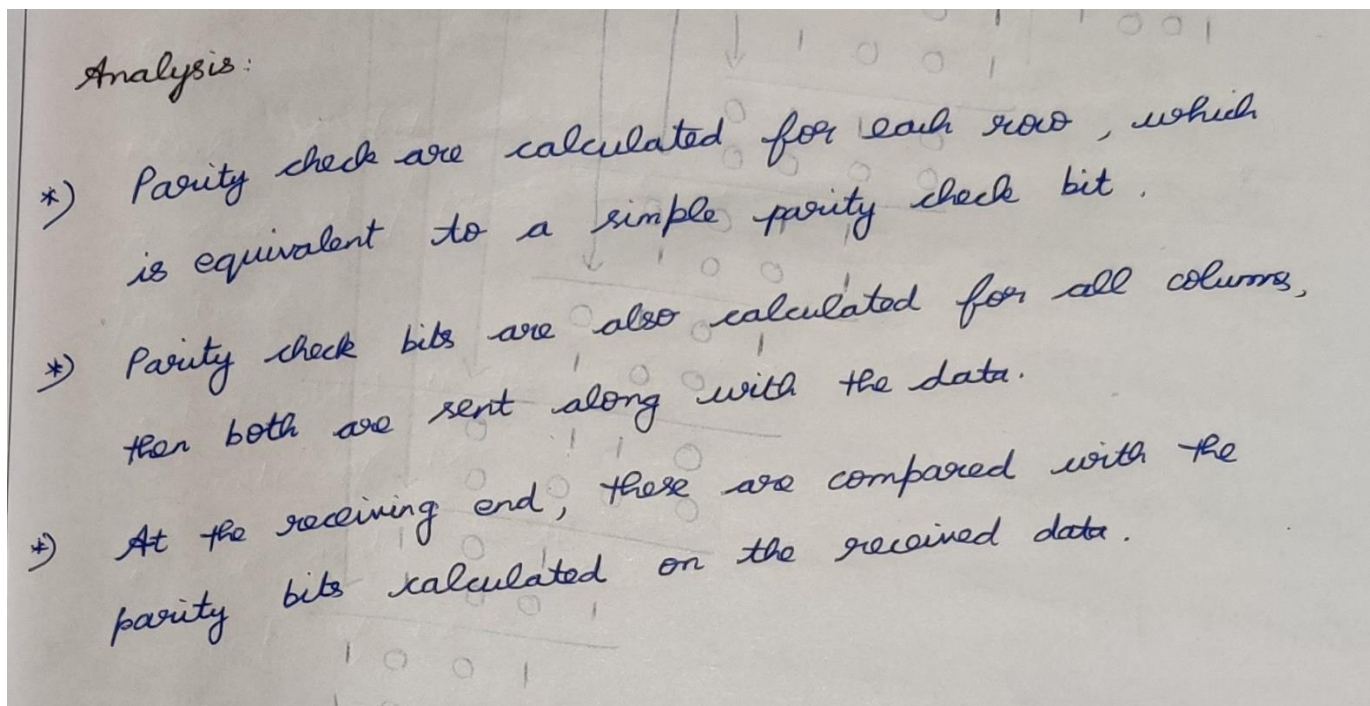 Analysis:
*) Parity check are calculated for each row, which
is equivalent to a simple parity check bit.
*) Parity check bits are also calculated for all colums,
then both are sent along with the data.
*) At the receiving end, these are compared with the
parity bits calculated on the received data.
1 0 0 1